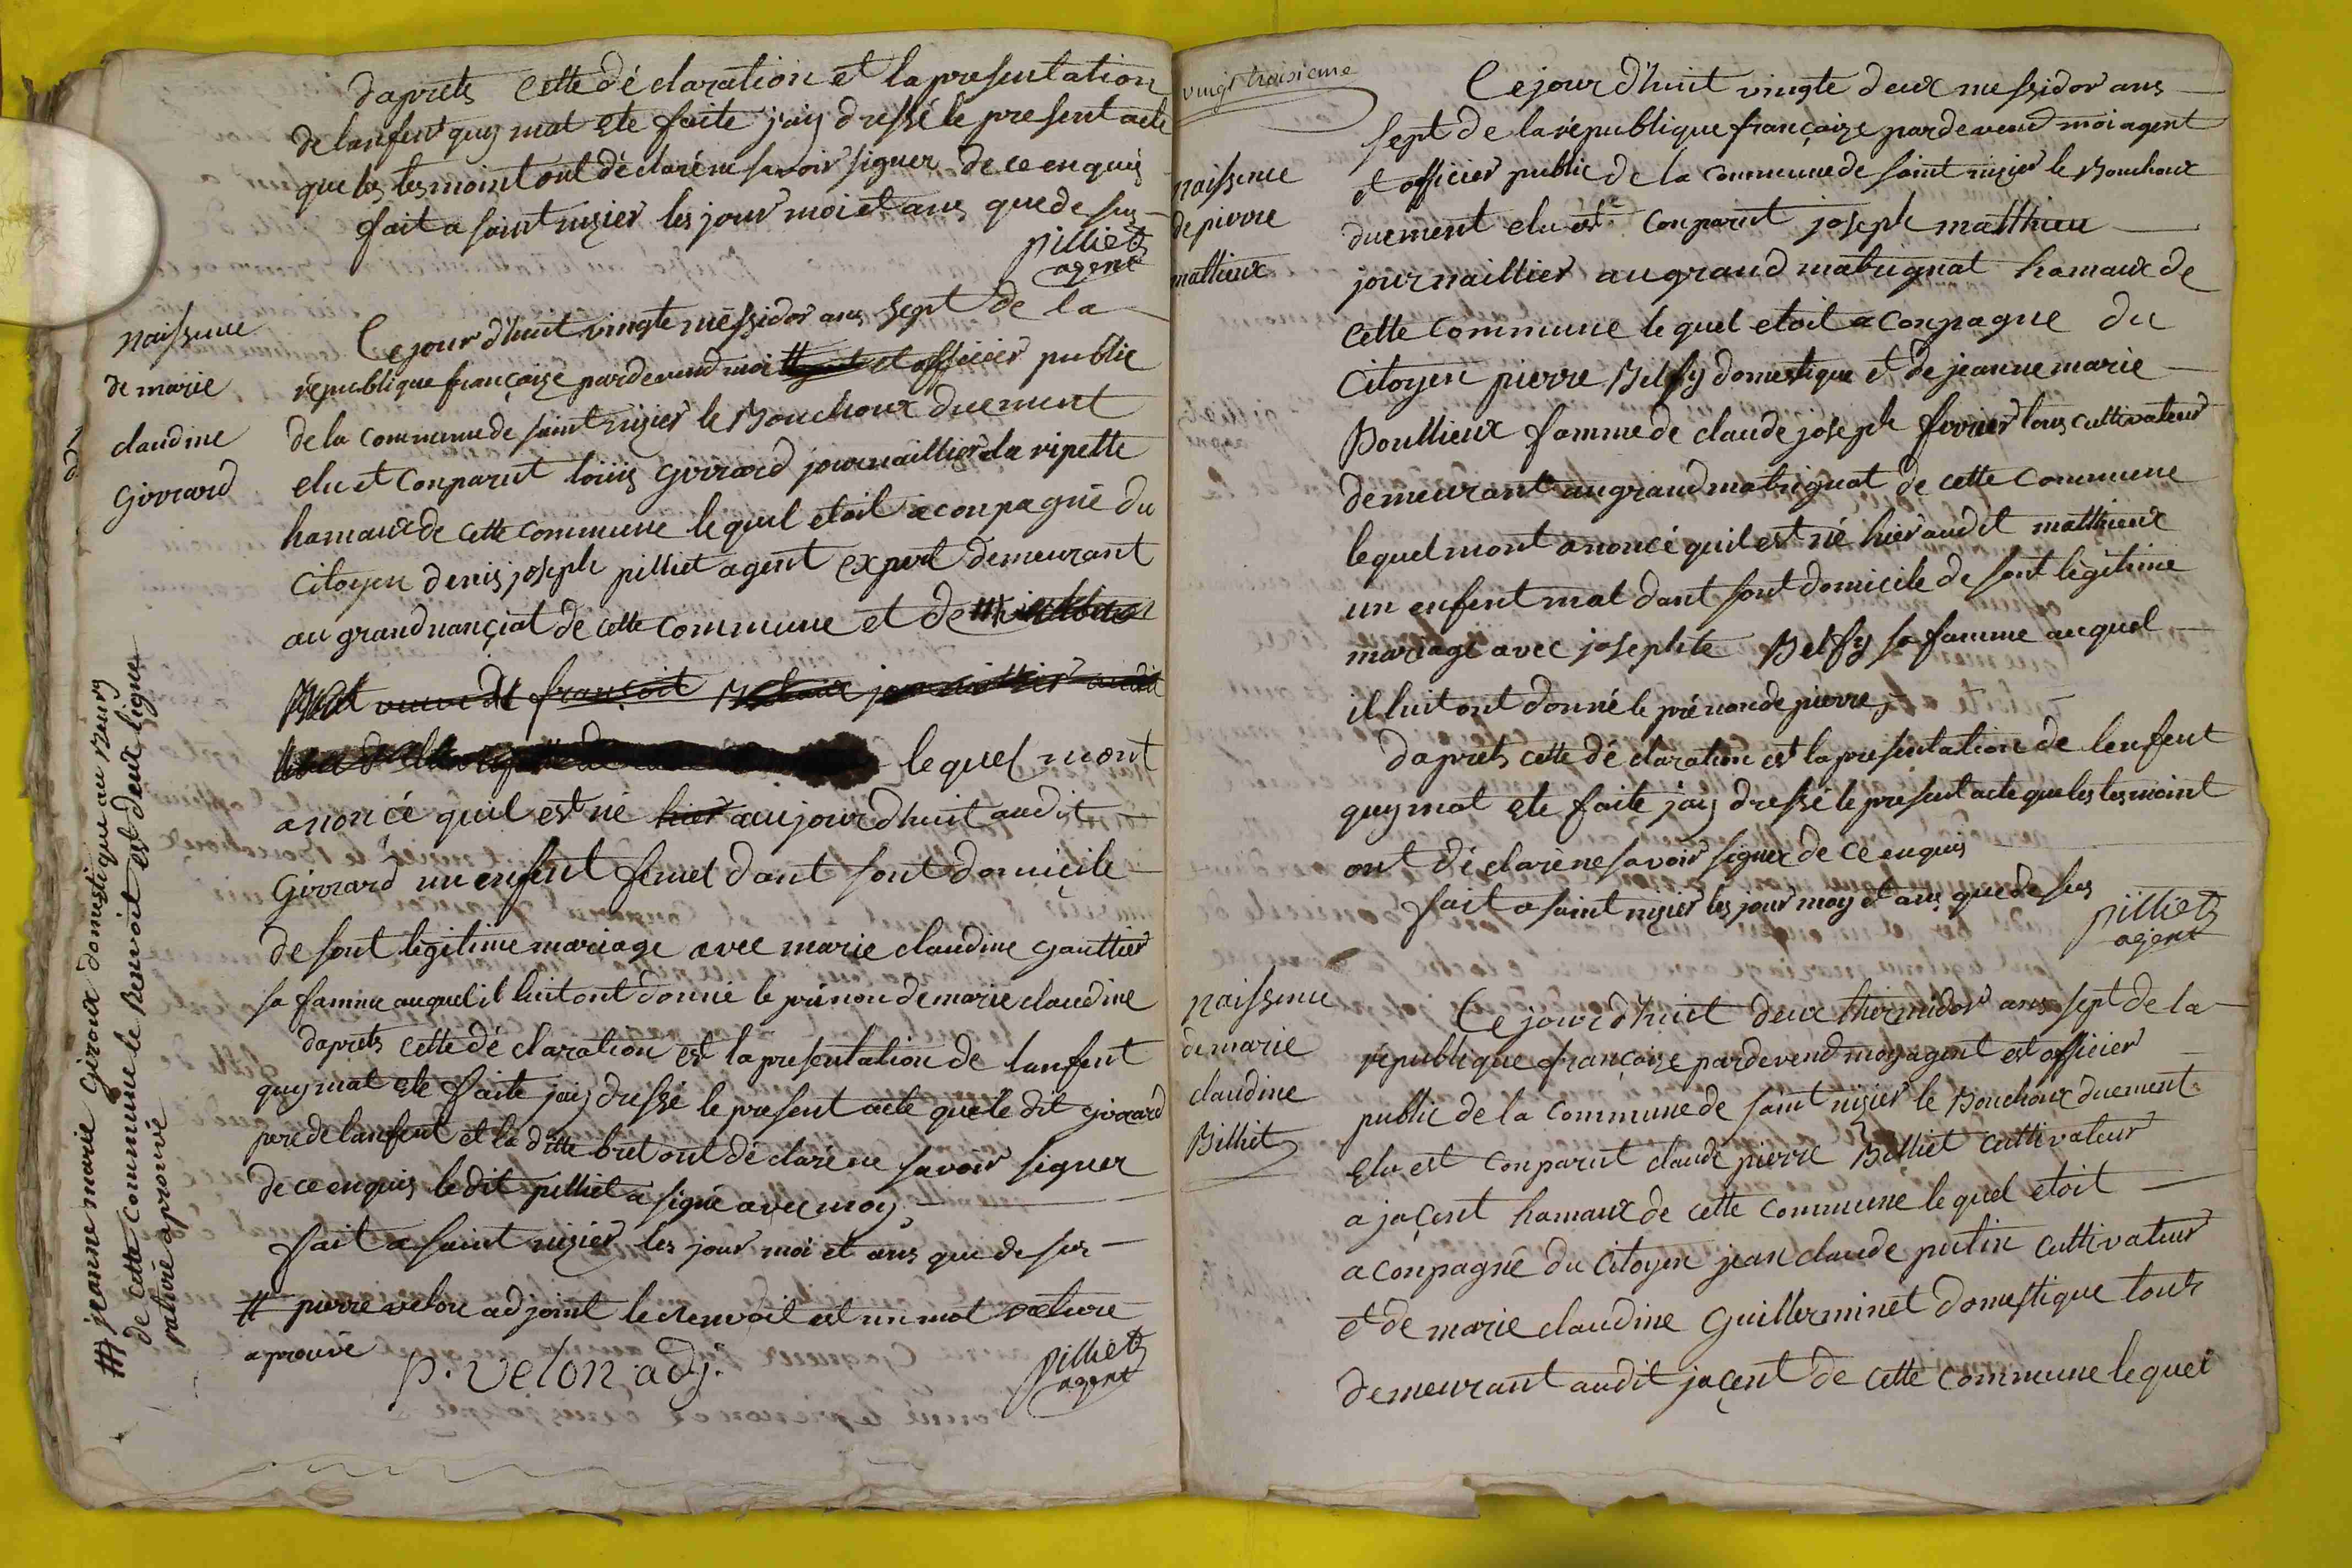 daprets cette déclaration et la presentation
de lanfent quy mat ete faite j'ay dressé le present acte
que les tesmoint ont déclaré ne savoir signer de ce enquis
fait a saint nizier les jour moi et ans que de sus
pilliet
agent
naissence
de marie
claudine
Girrard
Ce jour d'huit vingte messidor ans sept de la
république françaize pardevend moi # et officier public
de la commune de saint nizier le Bouchoux duement
elu et conparut louis Girrard journaillier a la ripette
hamaux de cette commune lequel etoit aconpagné du
Citoyen denis joseph pilliet agent expert demeurant
au grand nançiat de cette commune et de ##
veuve françoit
lequel mont
anoncé quil est né hier aujourdhuit audit
Girrard un enfent femel dant sont domicile
de sont legitime mariage avec marie claudine Gauttier
sa famme auquel il luit ont donné le prénon de marie claudine
daprets cette déclaration est la presentation de lanfent
quy mat ete faite jay dressé le present acte que le dit girrard
pere de lanfent et la ditte bret ont déclaré ne savoir signer
de ce enquis le dit pilliet a signé avec moy
fait a saint nizier les jour moi et ans que de sus
# pierre velon adjoint le Renvoit est un mot
aprouvé
P. velon adj.
pilliet
agent
## jeanne marie Giroux domestique au
de cette commune le Renvoit est deux ligne
aprouvé
vingt troisieme
naissence
de pierre
mathieux
Ce jour d'huit vingte deux messidor ans
sept de la république françaize pardevend moi agent
et officier public de la commune de saint nizier le Bouchoux
duement elu est conparut joseph matthieu
journaillier au grand matrignat hamaux de
cette commune lequel etoit aconpagne du
Citoyen pierre Belfy domestique et de jeanne marie
Poullieux famme de claude joseph tous cultivateur
demeurant au grand matrignat de cette commune
lequel mont anoncé quil est né hier audit matthieux
un enfent mal dant sont domicile de sont légitime
mariage avec josephte Belfy sa famme auquel
il luit ont donné le prénon de pierre
daprets cette déclaration est la presentation de lenfent
quy mat ete faite jay dressé le present acte que les tesmoint
ont déclaré ne savoir signer de ce enquis
fait a saint nizier les jour moy et ans que de sus
pilliet
agent
naissence
de marie
claudine
Billiet
Ce jour d'huit deux thermidor ans sept de la
république françaize pardevend moy agent est officier
public de la commune de saint nizier le Bouchoux duement
elu est conparut claude pierre Billiet cultivateur
a jaçent hamaux de cette commune lequel etoit
aconpagné du Citoyen jean claude putin cultivateur
et de marie claudine Guillerminet domestique touts
demeurant audit jaçent de cette commune lequel